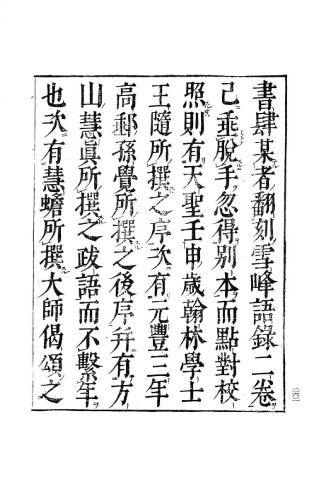 書肆某者翻刻雪峰語錄二卷
已垂脫手忽得別本而點對校
照則有天聖壬申歲翰林學士
王隨所撰之序次有元豐三年
高郵孫覺所撰之後序并有方
山慧眞所撰之跋語而不繫年
也次有慧蟾所撰大師偈頌之